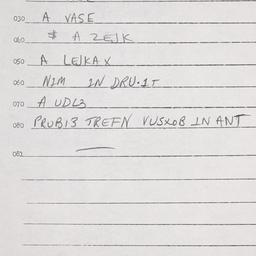 030 A VASE
040 $ A ZEJK
050 A LEJKA X
060 NIM IN DRU.IT
070 A UDL3
080 PRUBI3 TREFN VUSXOB IN ANT
082